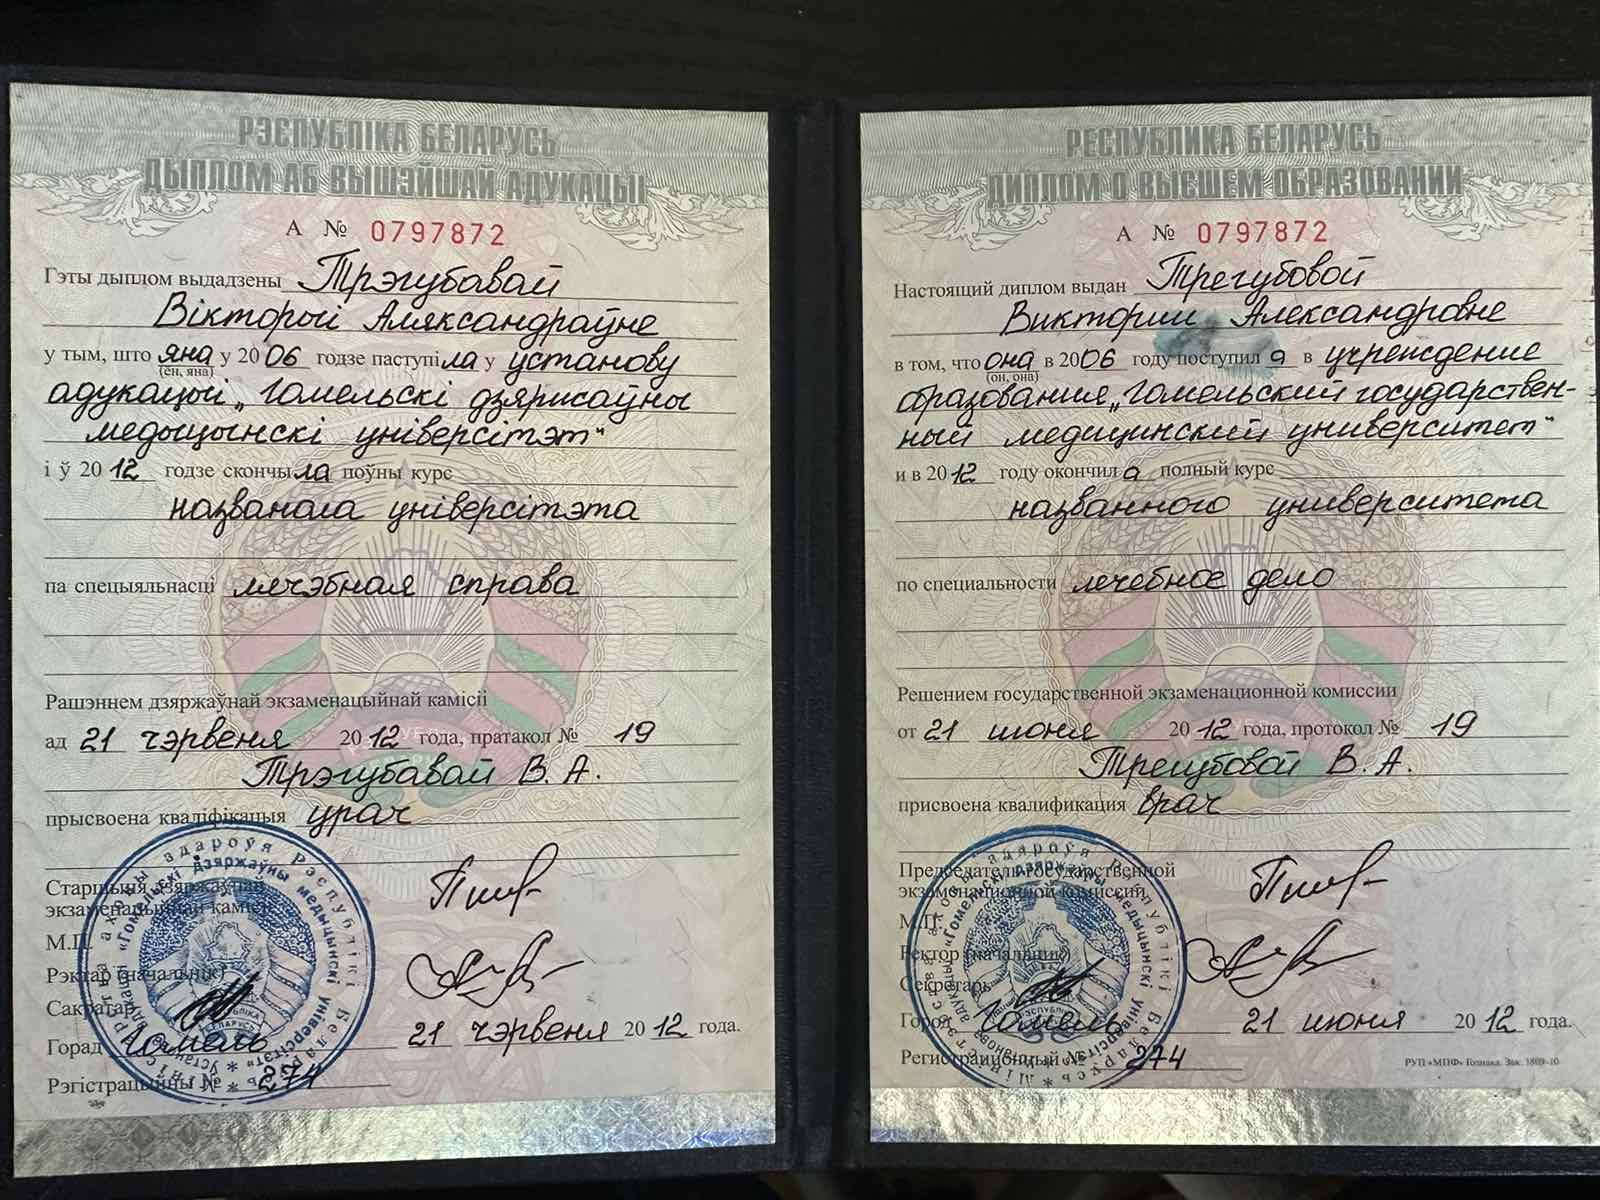 РЭСПУБЛІКА БЕЛАРУСЬ
ДЫПЛОМ АБ ВЫШЭЙШАЙ АДУКАЦЫІ
А № 0797872
Гэты дыплом выдадзены Трэгубавай
Вікторыі Аляксандраўне
у тым, што яна у 2006 годзе паступіла у установу
(ён, яна)
адукацыі „Гомельскі дзяржаўны
медыцынскі універсітэт“
і ў 2012 годзе скончыла поўны курс
названага універсітэта
па спецыяльнасці лячэбная справа
Рашэннем дзяржаўнай экзаменацыйнай камісіі
ад 21 чэрвеня 2012 года, пратакол № 19
Трэгубавай В. А.
прысвоена кваліфікацыя урач
Старшыня дзяржаўнай
экзаменацыйнай камісіі
М.П.
Рэктар (начальнік)
Сакратар
21 чэрвеня 2012 года.
Горад Гомель
Рэгістрацыйны № 274
РЕСПУБЛИКА БЕЛАРУСЬ
ДИПЛОМ О ВЫСШЕМ ОБРАЗОВАНИИ
А № 0797872
Настоящий диплом выдан Трегубовой
Виктории Александровне
в том, что она в 2006 году поступила в учреждение
(он, она)
образования „Гомельский государствен-
ный медицинский университет“
и в 2012 году окончила полный курс
названного университета
по специальности лечебное дело
Решением государственной экзаменационной комиссии
от 21 июня 2012 года, протокол № 19
Трегубовой В. А.
присвоена квалификация врач
Председатель государственной
экзаменационной комиссии
М.П.
Ректор (начальник)
Секретарь
Город Гомель 21 июня 2012 года.
Регистрационный № 274
РУП «МПФ» Гознака. Зак. 1809-10